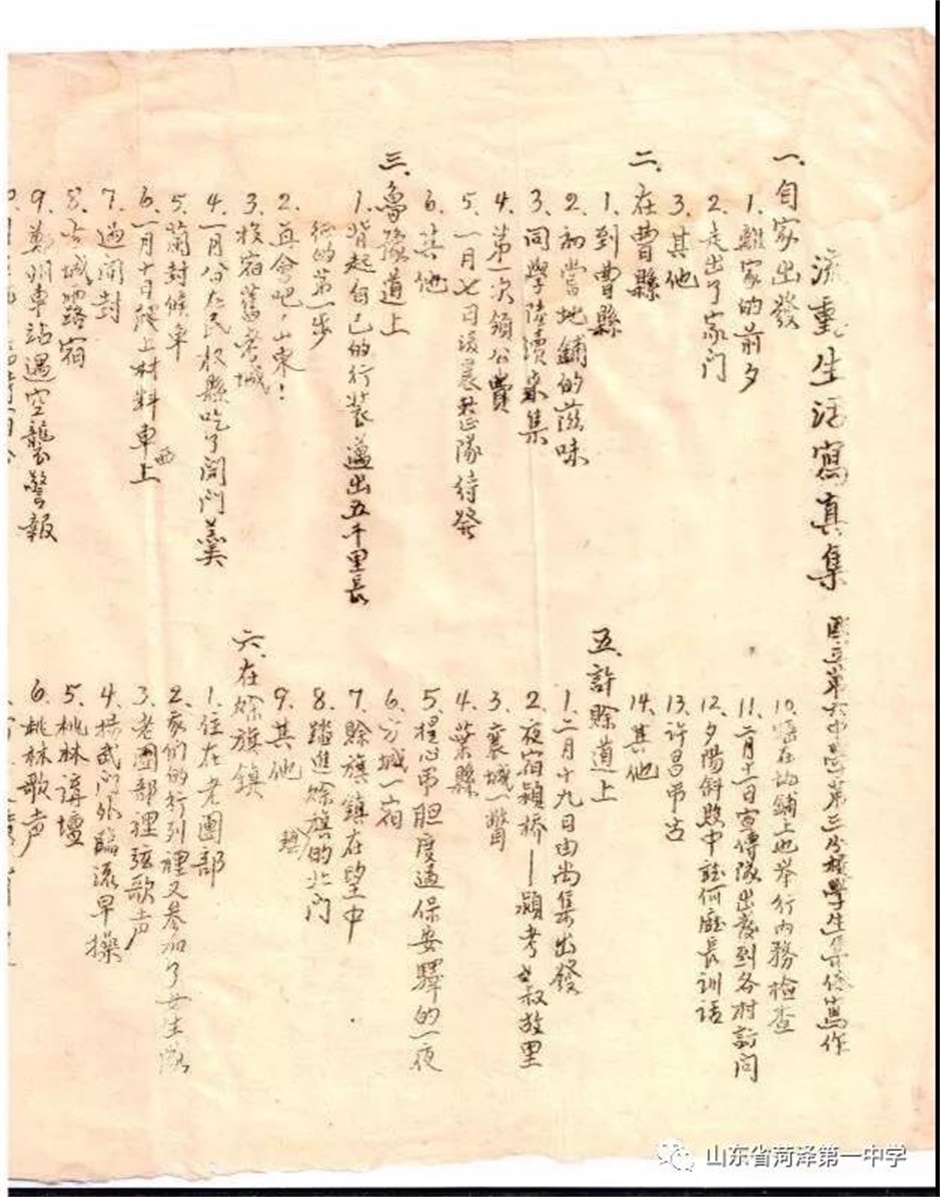 流亡生活寫真集
國立第六中學第三分校學生集体寫作
一、自家出發
1.離家的前夕
2.走出了家门
3.其他
二、在曹縣
1.到曹縣
2.初當地鋪的滋味
3.同學陸續来集
4.第一次領公費
5.一月七日後裏整隊待發
6.其他
三、魯豫道上
1.背起自己的行装邁出五千里長
征的第一步
2.再會吧，山東！
3.投宿舊考城
4.一月八日在民权縣吃了闭门羹
5.蘭封候車
6.一月十日爬上材料車上
西
7.過開封
8.古城露宿
9.鄭州車站遇空襲警報
10.
在地鋪上也举行内務檢查
11.二月十一日宣傳隊出發到各村訪问
12.夕陽斜照中聽何廳長训话
13.许昌吊古
14.其他
五、許赊道上
1.二月十九日由尚集出發
2.夜宿颍桥——颍考叔故里
3.襄城一瞥
4.葉縣
5.提心吊胆度過保安驛的一夜
6.方城一宿
7.赊旗鎮在望中
8.踏進赊旗鎮的北门
9.其他
六、在赊旗鎮
1.住在老團部
2.我們的行列裡又參加了女生隊
3.老團部裡弦歌声
4.揚武门外臨流早操
5.桃林講壇
6.桃林歌声
山东省菏泽第一中学